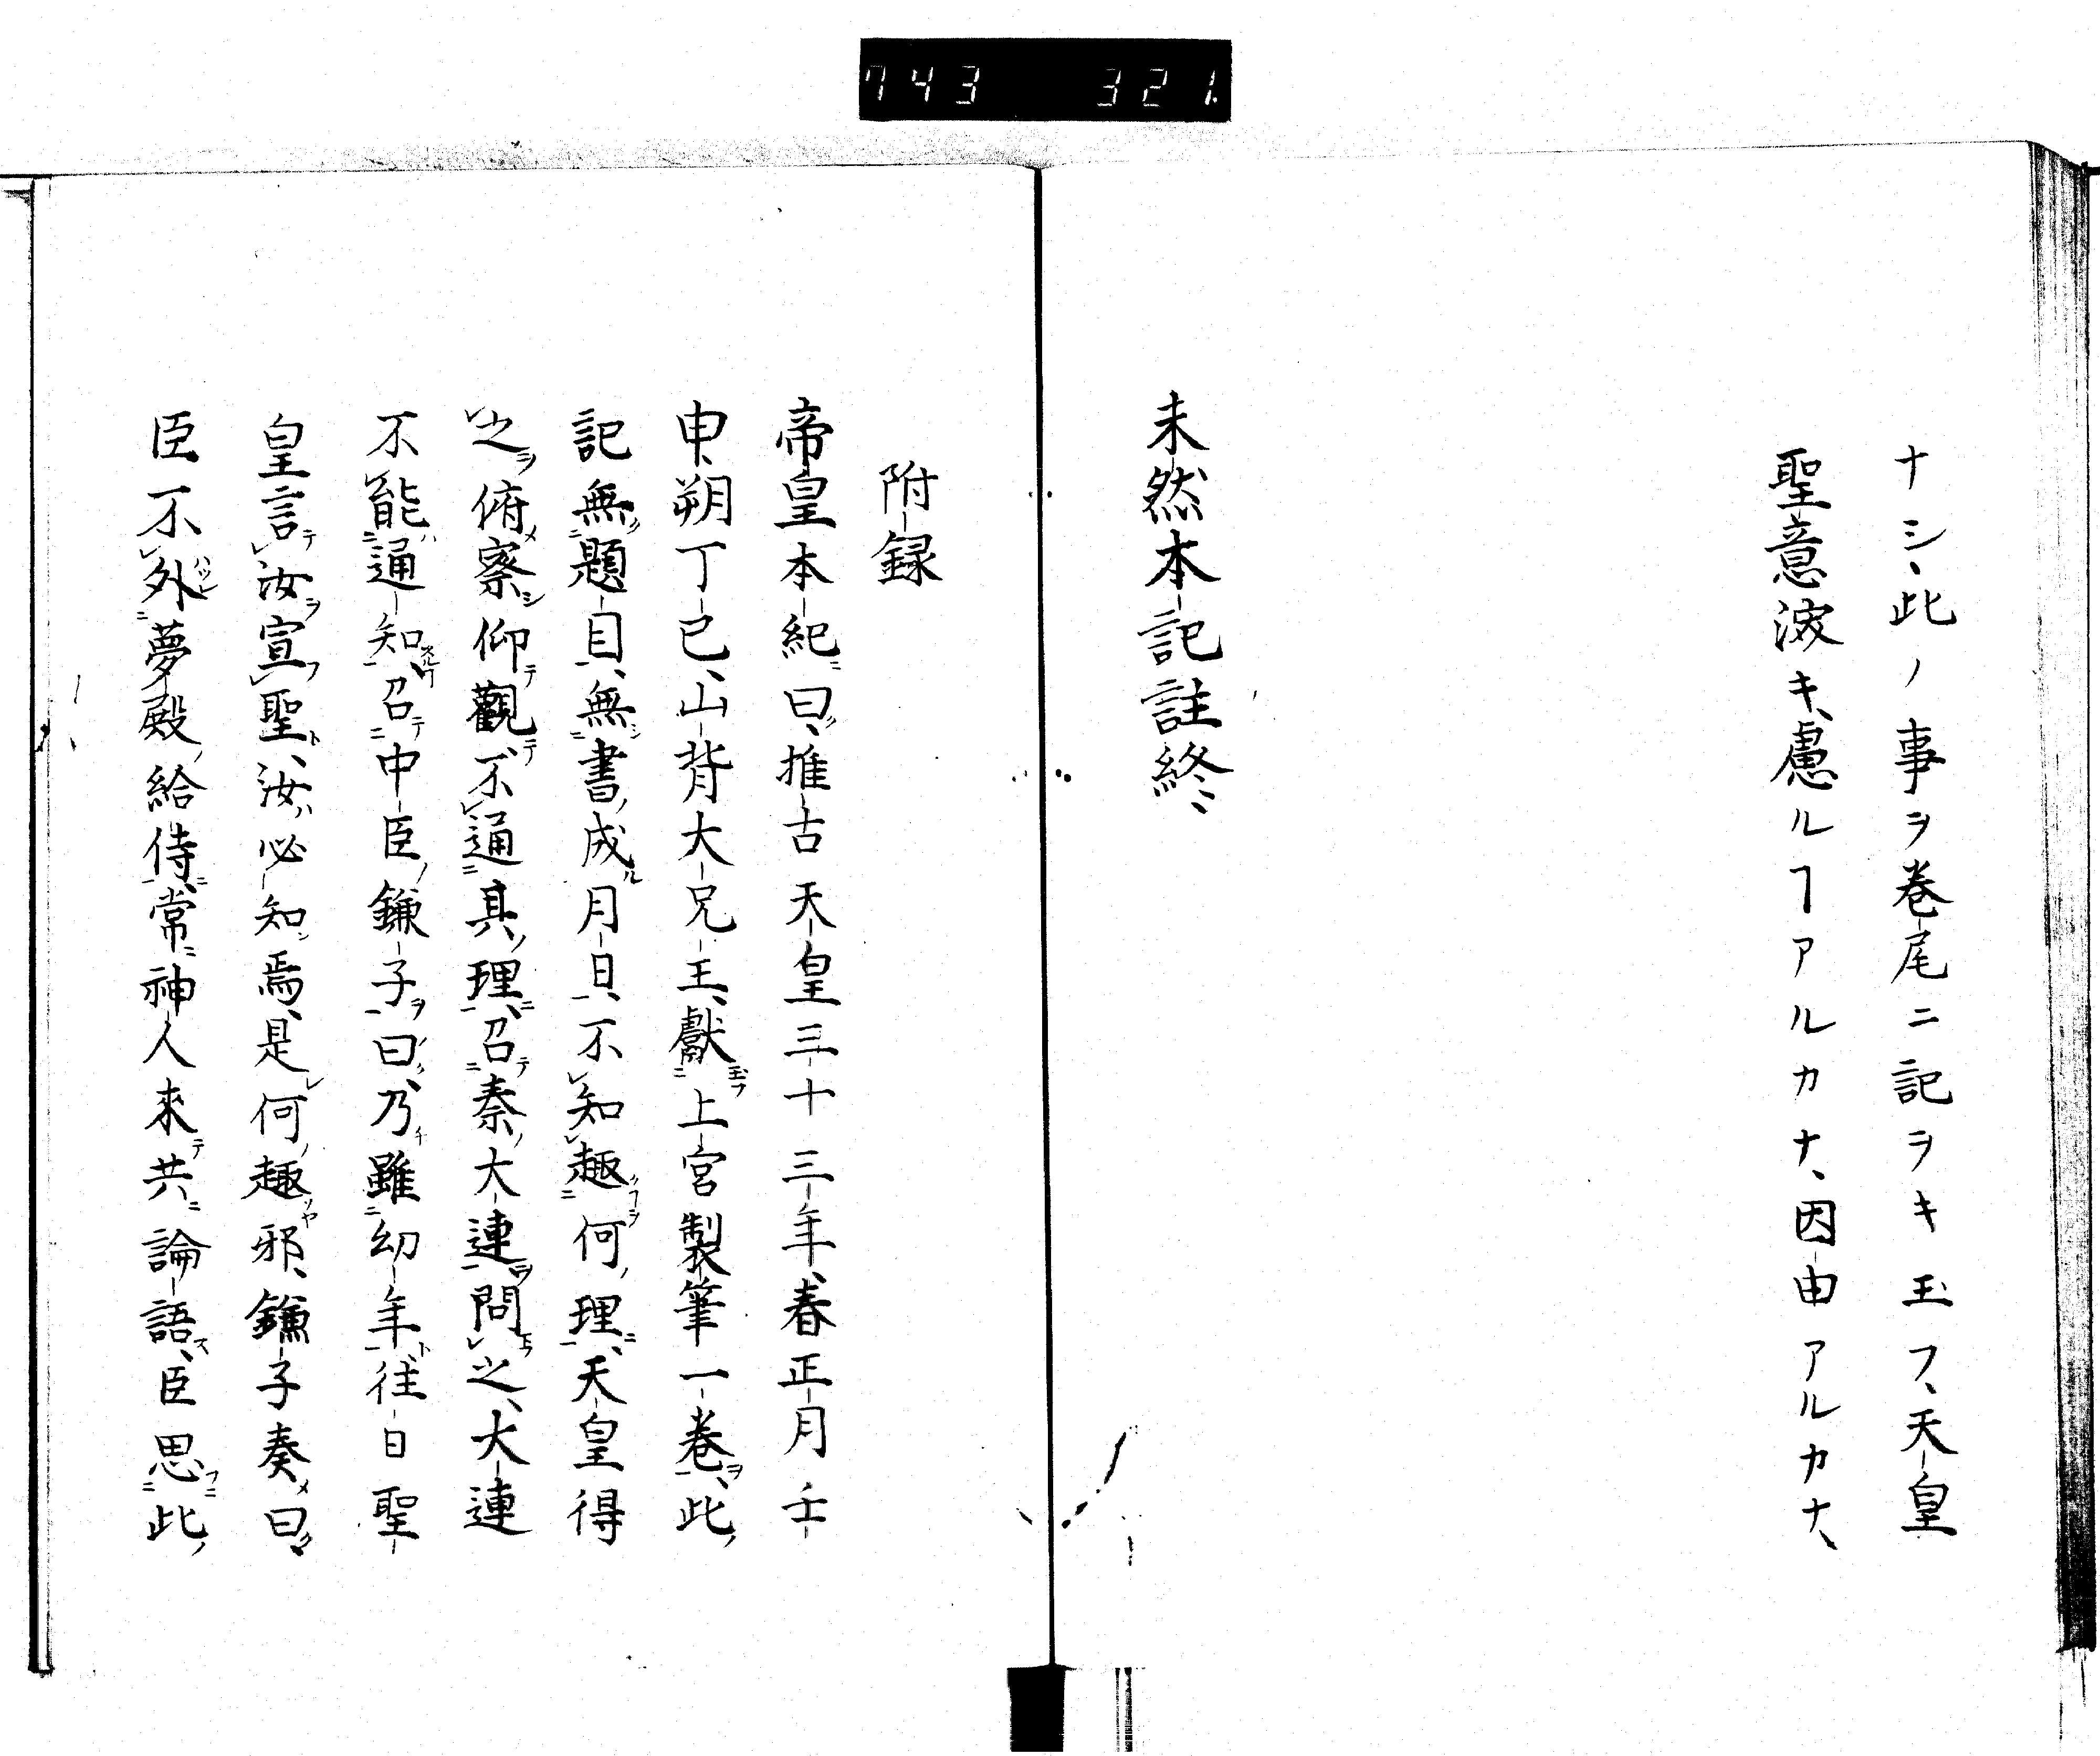 743 321
ナシ、此ノ事ヲ巻尾ニ記ヲキ玉フ、天皇
聖意深キ、慮ルヿアルカナ、因由アルカナ、
未然本記註終
附録
帝皇本紀曰、推古天皇三十三年、春正月壬
申、朔丁巳、山背大兄王、獻上宮製筆一巻、此
記無題目、無書成月日、不知趣何理、天皇得
之俯察仰觀不通其理、召秦大連問之、大連
不能通知、召中臣鎌子曰、乃雖幼年、往日聖
皇言汝宣聖、汝必知焉、是何趣邪、鎌子奏曰、
臣不外夢殿給侍、常神人來共論語、臣思此